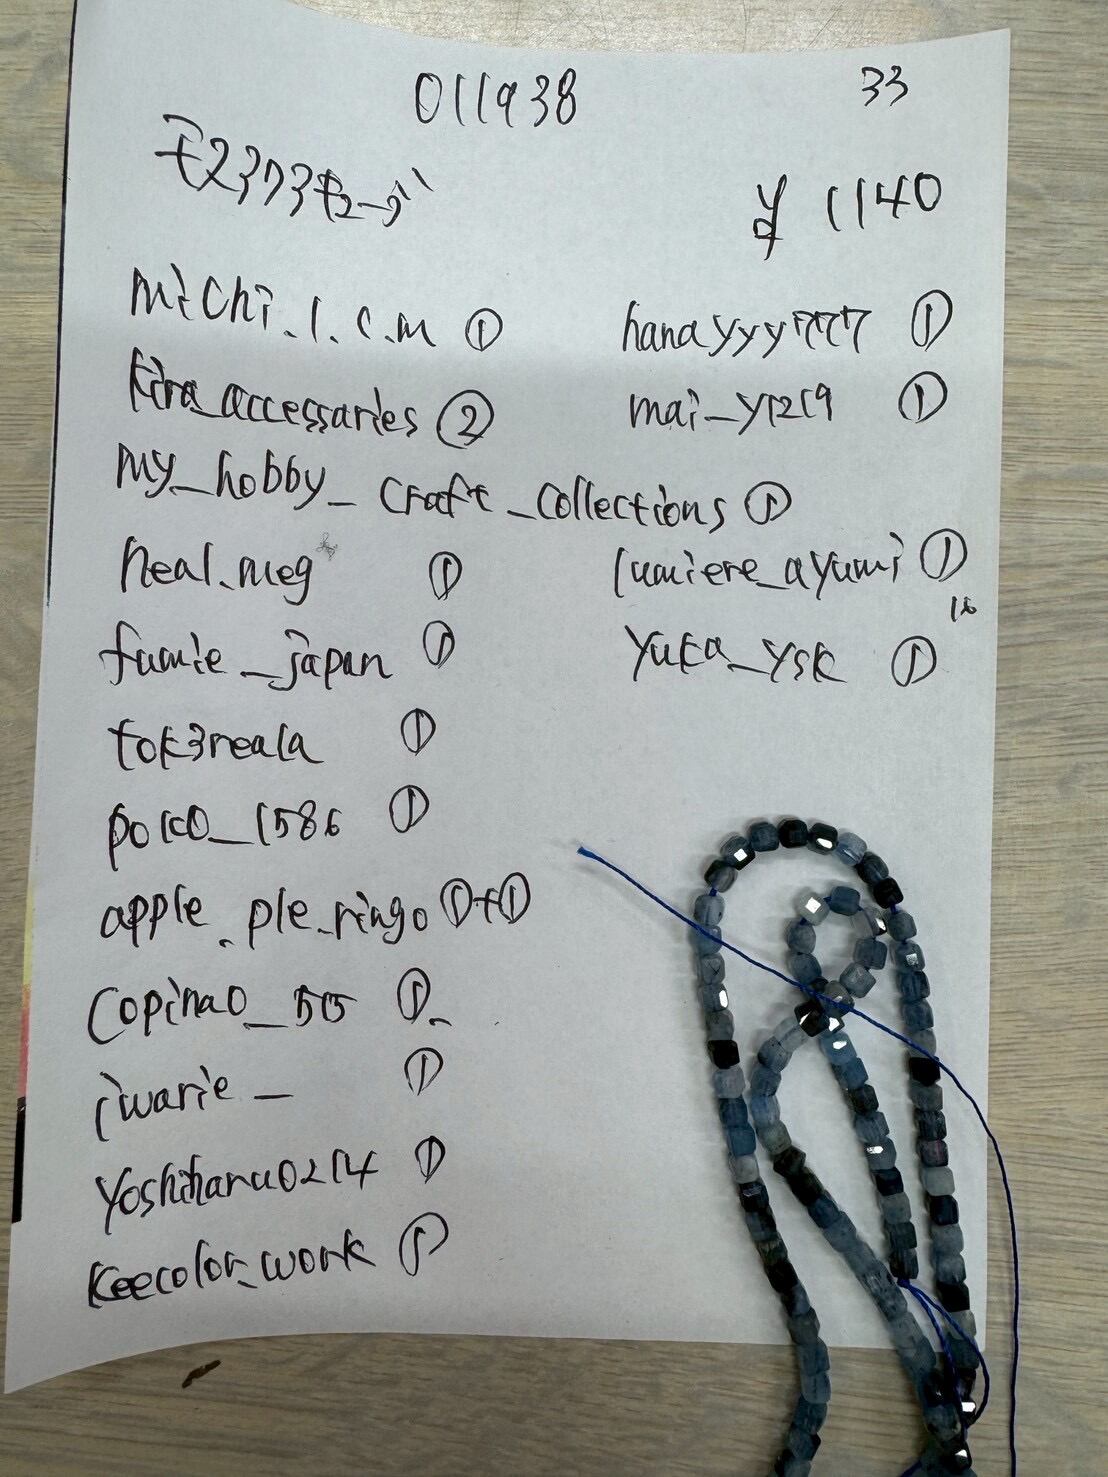 011938 33
¥ 1140
michi.l.c.m ①
hanayyy7777 ①
kira_accessaries ②
mai_y1219 ①
my_hobby_craft_collections ①
neal.meg ①
lumiere_ayumi ①
16
fumie_japan ①
yuka_ysk ①
tok3reala ①
poko_1586 ①
apple.ple_ringo ①+①
copinao_515 ①
iwarie_ ①
yoshiharu0214 ①
keecolor_work ①